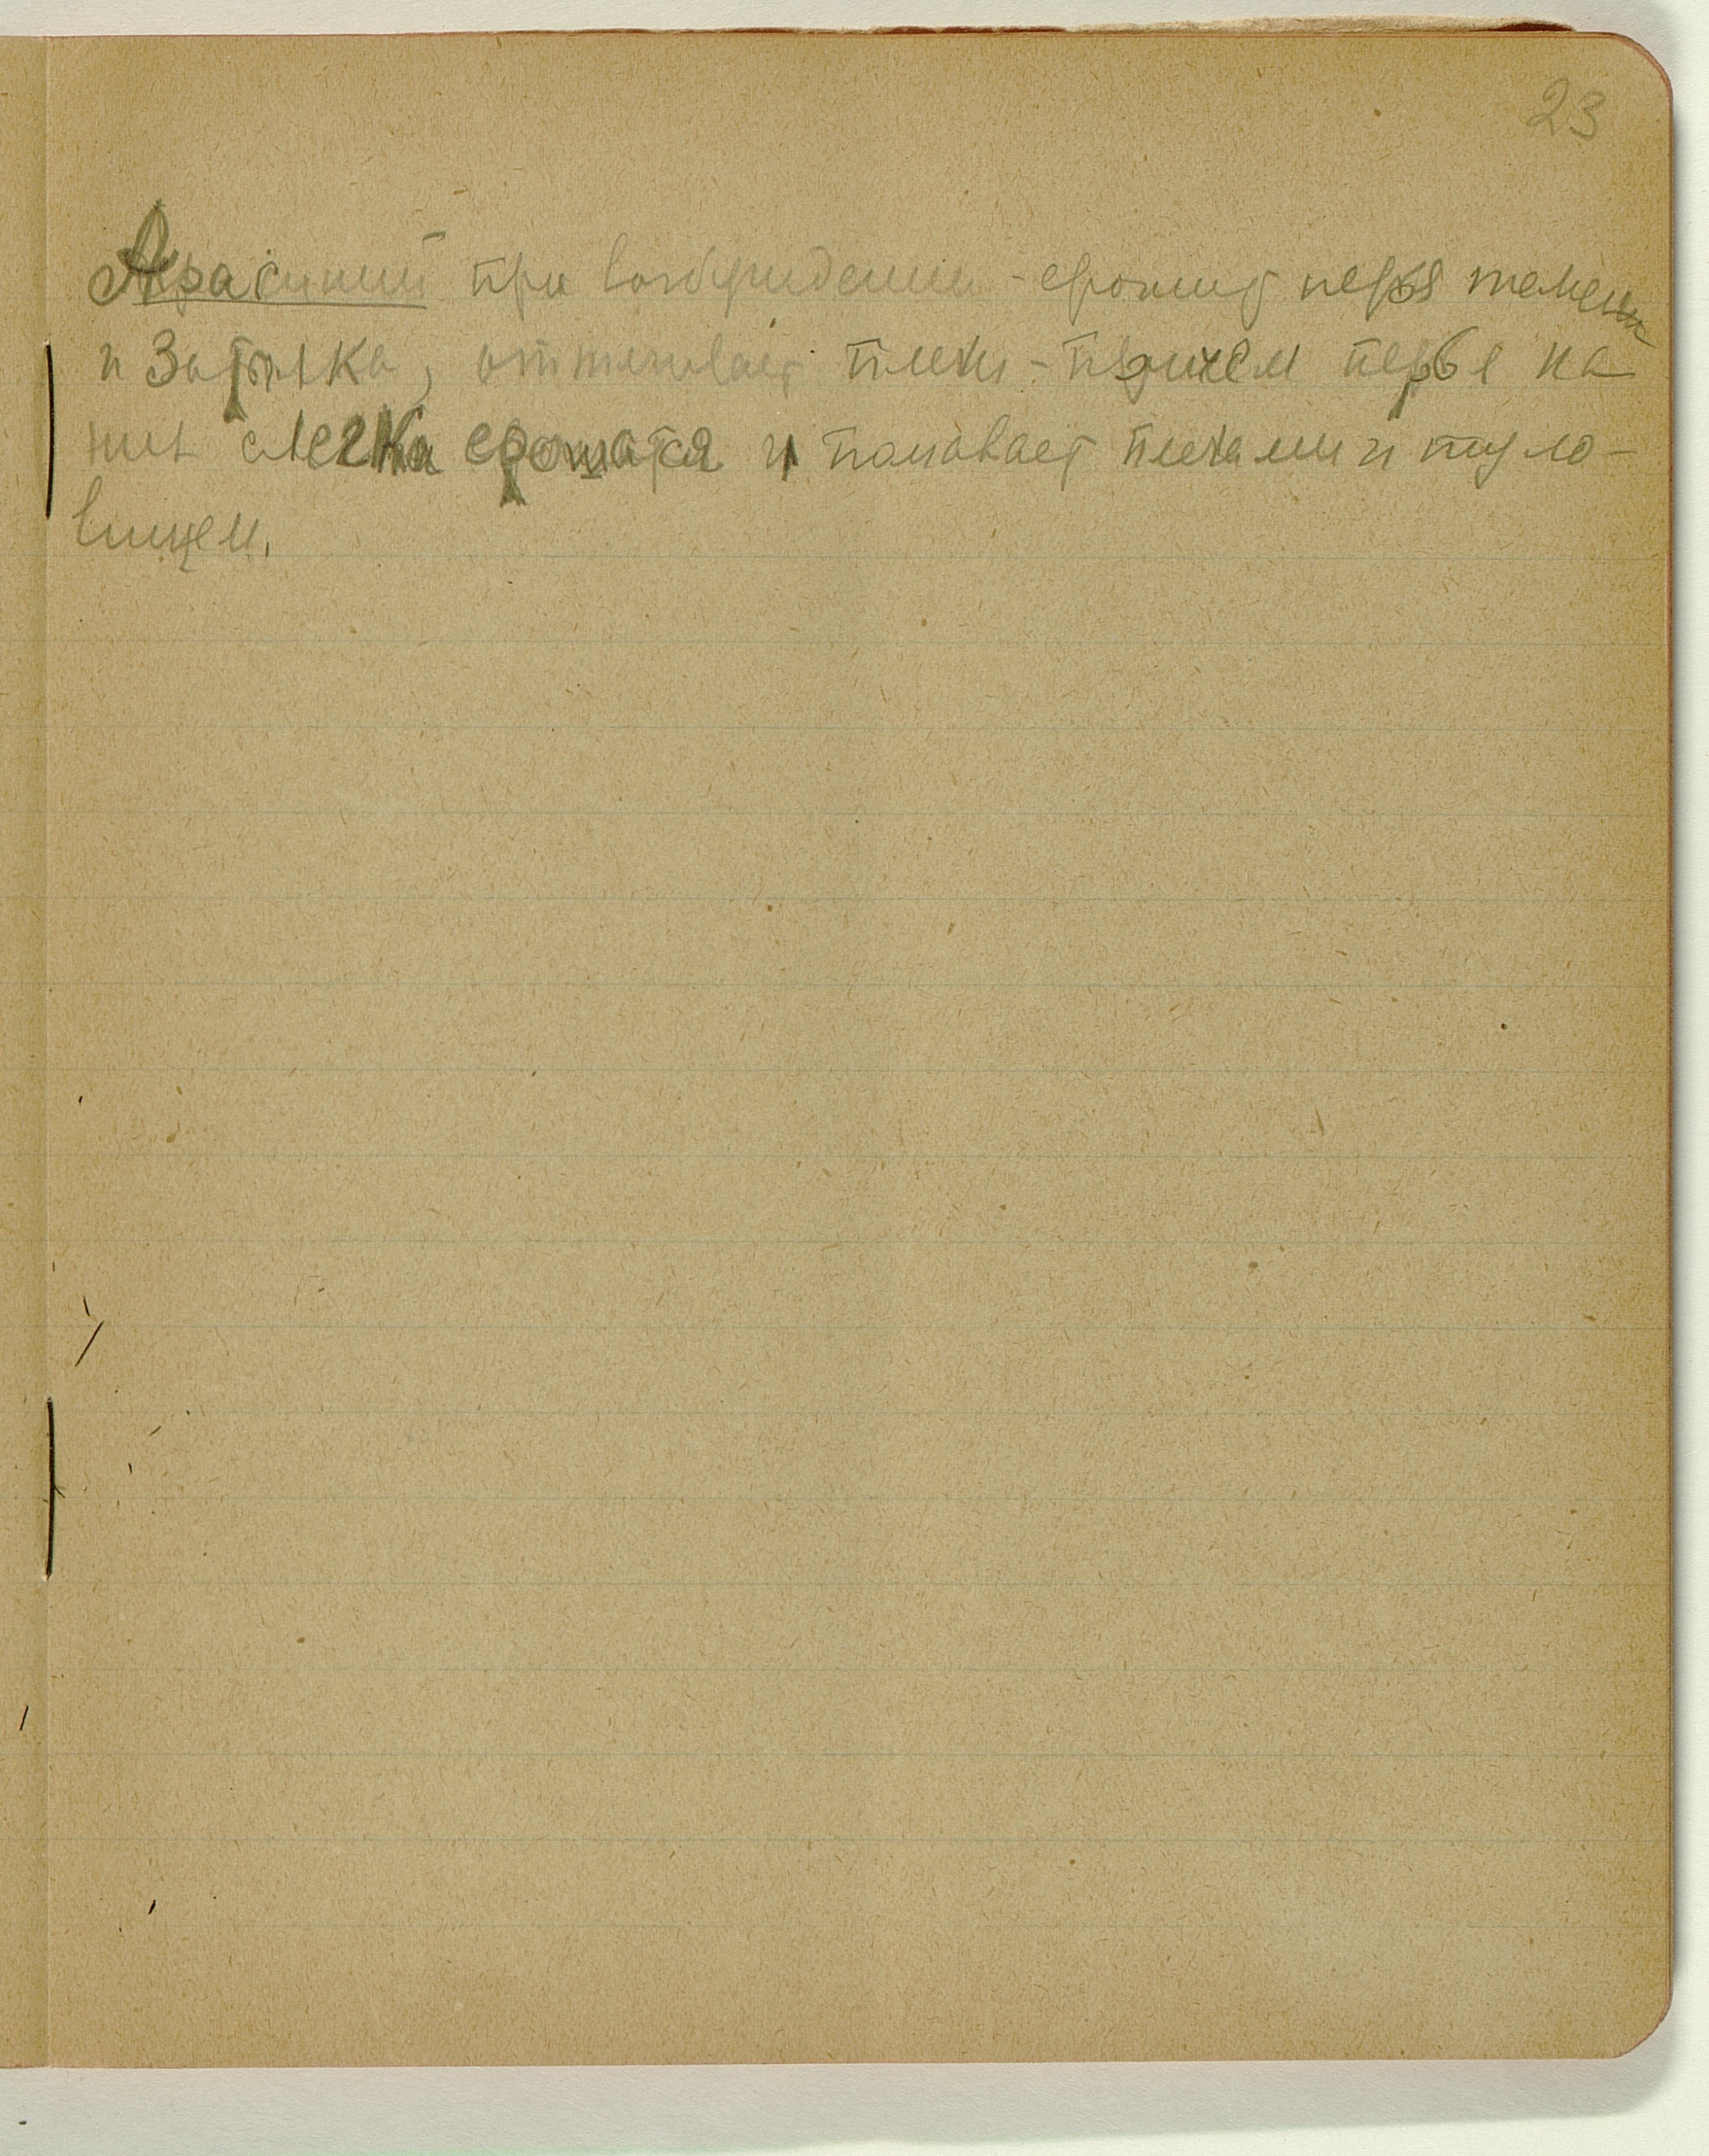 23
Ара синий при возбуждении - ерошит перья темени
и затылка, оттягивает плечи - причём перья на
них слегка ерошатся и помавает плечами и туло-
вищем.